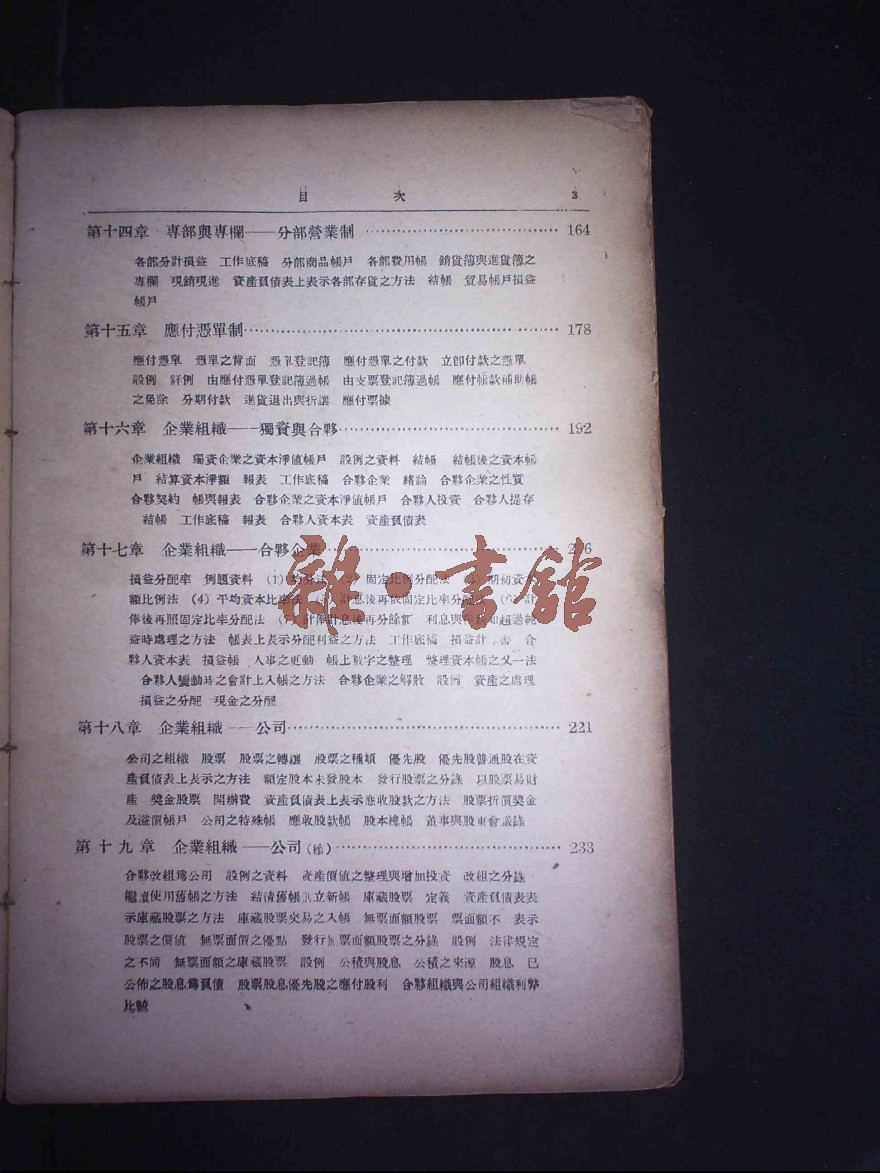 目 次 3
第十四章 專部與專欄——分部營業制 164
各部分計損益 工作底稿 分部商品帳戶 各部費用帳 銷貨簿與進貨簿之
專欄 現銷現進 資產負債表上表示各部存貨之方法 結帳 貿易帳戶損益
帳戶
第十五章 應付憑單制 178
應付憑單 憑單之背面 憑單登記簿 應付憑單之付款 立卽付款之憑單
設例 詳例 由應付憑單登記簿過帳 由支票登記簿過帳 應付帳款補助帳
之免除 分期付款 進貨退出與折讓 應付票據
第十六章 企業組織——獨資與合夥 192
企業組織 獨資企業之資本淨値帳戶 設例之資料 結帳 結帳後之資本帳
戶 結算資本淨額 報表 工作底稿 合夥企業 緒論 合夥企業之性質
合夥契約 帳與報表 合夥企業之資本淨値帳戶 合夥人投資 合夥人提存
結帳 工作底稿 報表 合夥人資本表 資產負債表
第十七章 企業組織——合夥企業
損益分配率 例題資料 (1) 固定比例分配法 期初資本
額比例法 (4) 平均資本比率法 計息後再依固定比率分配
俸後再照固定比率分配法 計俸計息後再分餘額 利息與 超過純
益時處理之方法 帳表上表示分配利益之方法 工作底稿 損益計 書 合
夥人資本表 損益帳 人事之更動 帳上數字之整理 整理資本帳之又一法
合夥人變動時之會計上入帳之方法 合夥企業之解散 設例 資產之處理
損益之分配 現金之分配
第十八章 企業組織——公司 221
公司之組織 股票 股票之轉讓 股票之種類 優先股 優先股普通股在資
產負債表上表示之方法 額定股本未發股本 發行股票之分錄 以股票易財
產 獎金股票 開辦費 資產負債表上表示應收股款之方法 股票折價獎金
及溢價帳戶 公司之特殊帳 應收股款帳 股本總帳 董事與股東會議錄
第十九章 企業組織——公司(續) 233
合夥改組爲公司 設例之資料 資產價值之整理與增加投資 改組之分錄
繼續使用舊帳之方法 結清舊帳另立新帳 庫藏股票 定義 資產負債表表
示庫藏股票之方法 庫藏股票交易之入帳 無票面額股票 票面額不 表示
股票之價値 無票面價之優點 發行無票面額股票之分錄 設例 法律規定
之不同 無票面額之庫藏股票 設例 公積與股息 公積之來源 股息 已
公佈之股息爲負債 股票股息優先股之應付股利 合夥組織與公司組織利弊
比較
雜·書舘